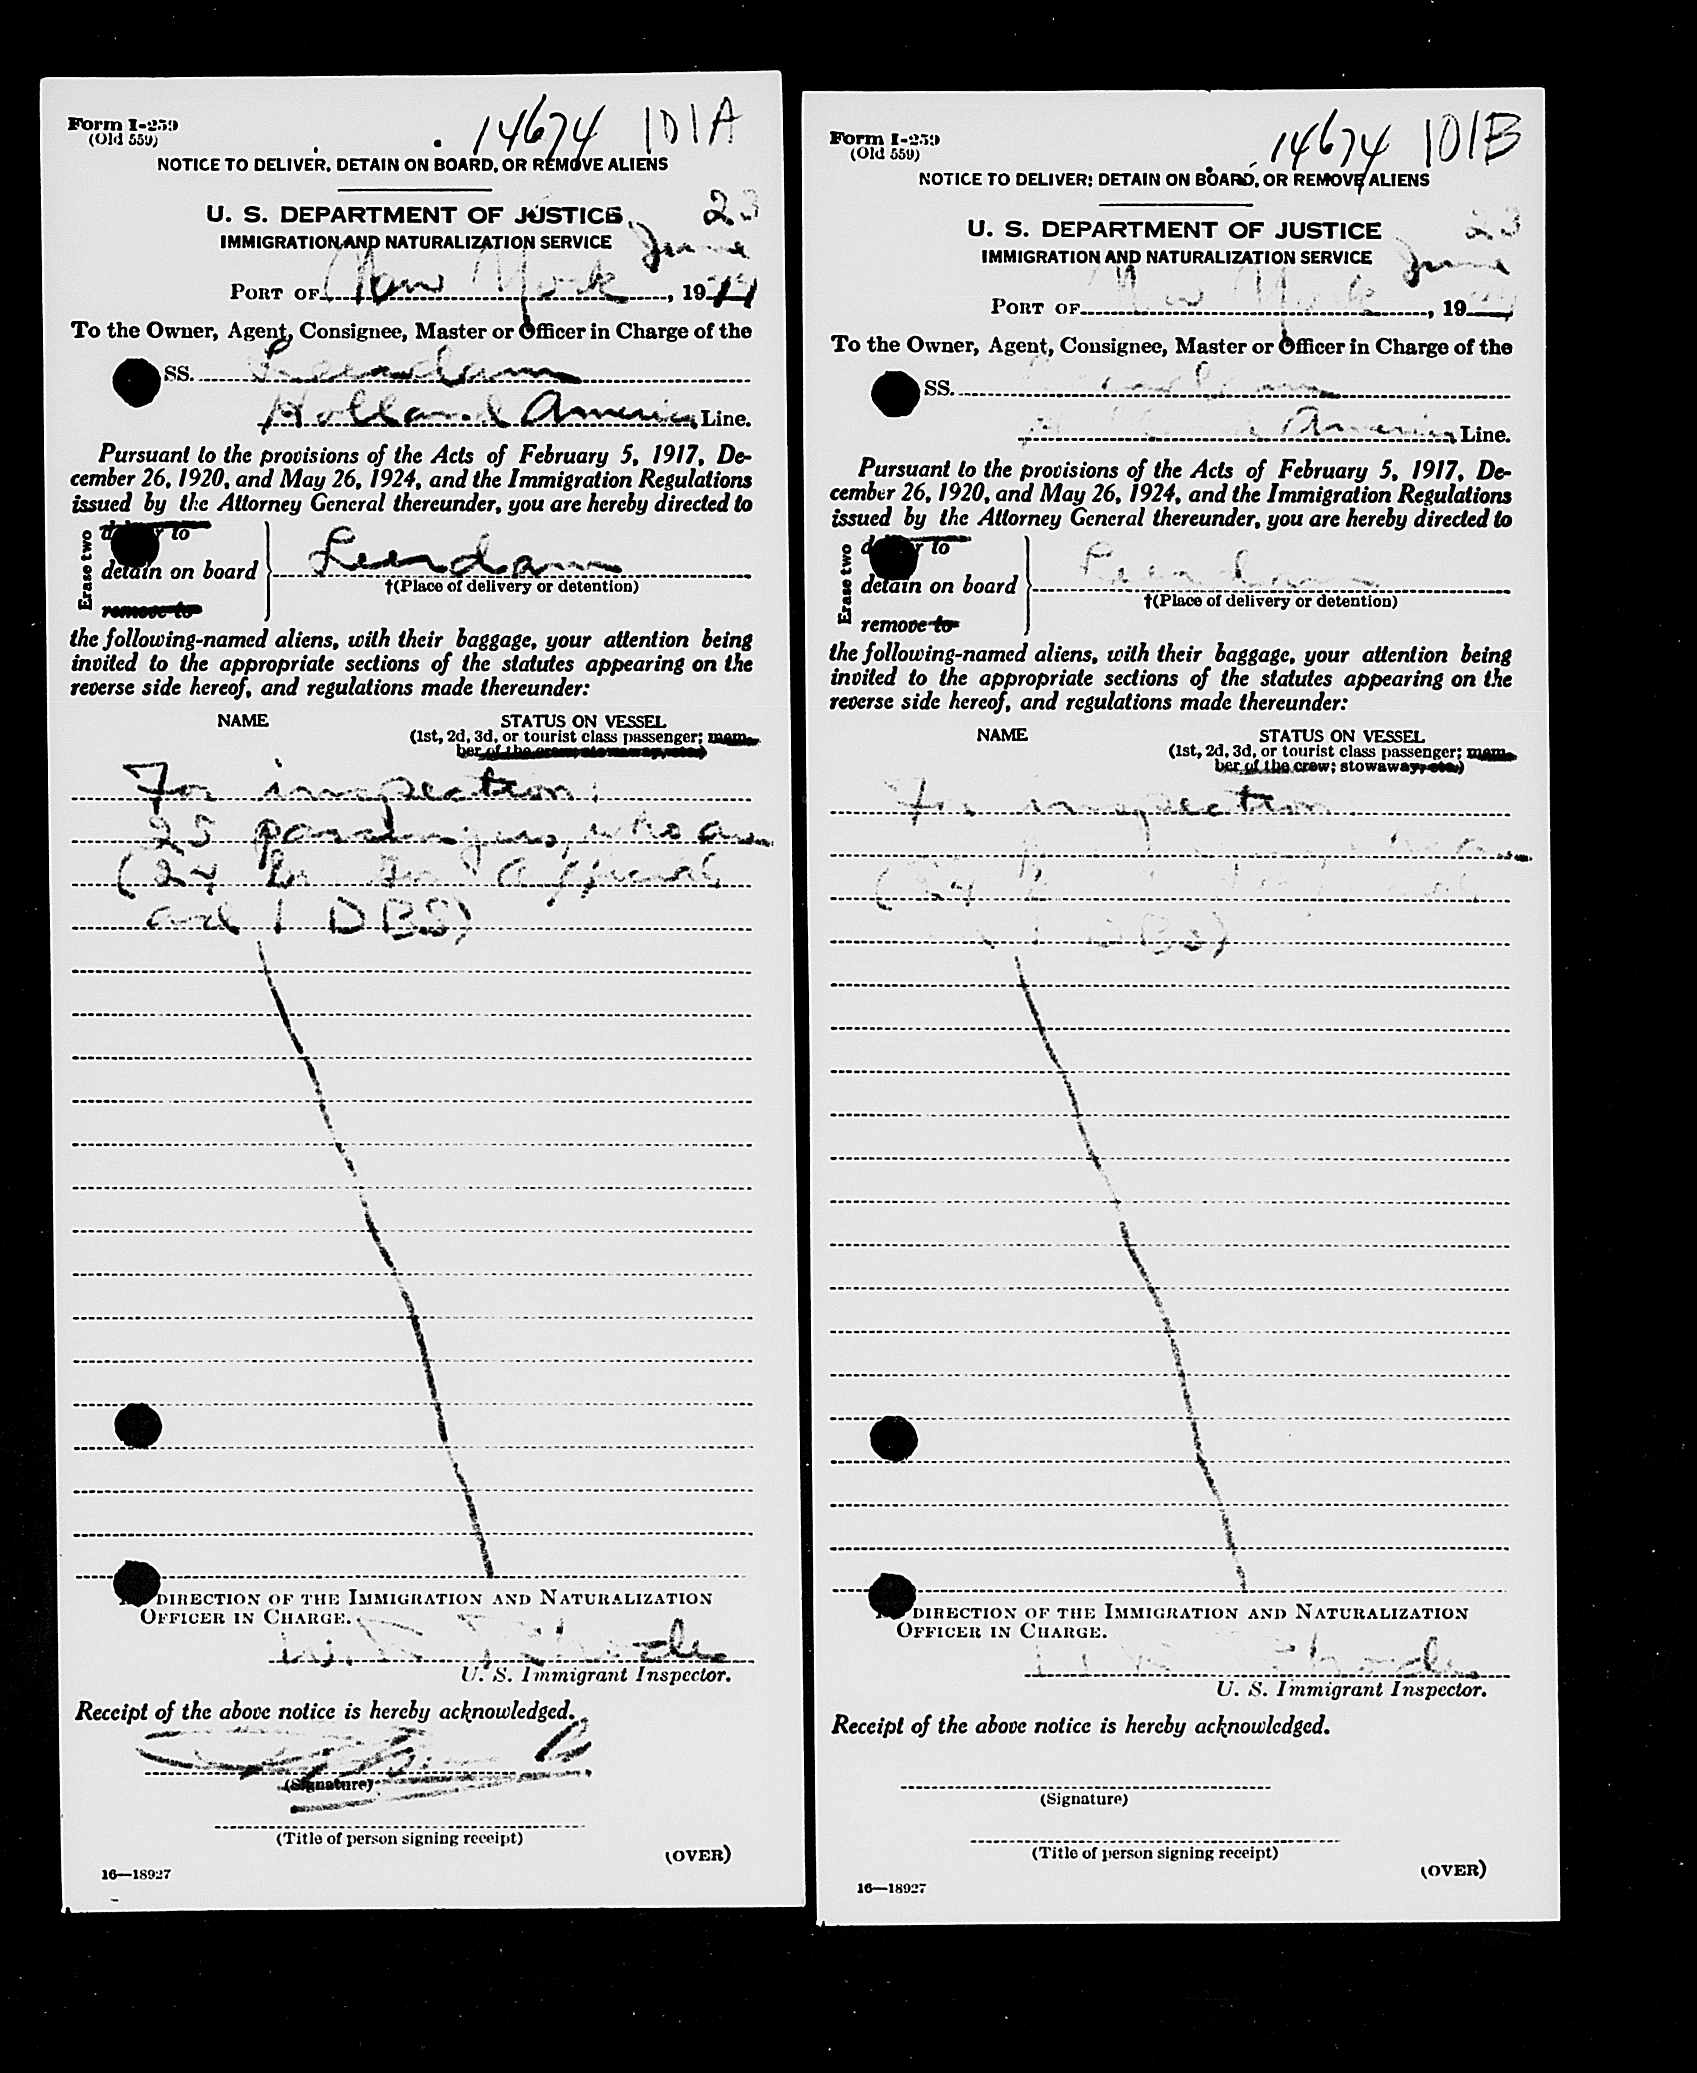 Form I-259
(Old 559)
14674 101A
NOTICE TO DELIVER, DETAIN ON BOARD, OR REMOVE ALIENS
U. S. DEPARTMENT OF JUSTICE
IMMIGRATION AND NATURALIZATION SERVICE
June 23
PORT OF New York, 1944
To the Owner, Agent, Consignee, Master or Officer in Charge of the
SS. Leerdam
Holland America Line.
Pursuant to the provisions of the Acts of February 5, 1917, De-
cember 26, 1920, and May 26, 1924, and the Immigration Regulations
issued by the Attorney General thereunder, you are hereby directed to
Erase two
deliver to
detain on board
remove to
Leerdam
†(Place of delivery or detention)
the following-named aliens, with their baggage, your attention being
invited to the appropriate sections of the statutes appearing on the
reverse side hereof, and regulations made thereunder:
NAME STATUS ON VESSEL
(1st, 2d, 3d, or tourist class passenger; mem-
ber of the crew; stowaway, etc.)
For inspection
25 passengers, who are
(24 Br Official
and 1 DBS)
DIRECTION OF THE IMMIGRATION AND NATURALIZATION
OFFICER IN CHARGE.
U. S. Immigrant Inspector.
Receipt of the above notice is hereby acknowledged.
(Signature)
(Title of person signing receipt)
(OVER)
16—18927
Form I-259
(Old 559)
14674 101B
NOTICE TO DELIVER, DETAIN ON BOARD, OR REMOVE ALIENS
U. S. DEPARTMENT OF JUSTICE
IMMIGRATION AND NATURALIZATION SERVICE
June 23
PORT OF New York, 19
To the Owner, Agent, Consignee, Master or Officer in Charge of the
SS. Leerdam
America Line.
Pursuant to the provisions of the Acts of February 5, 1917, De-
cember 26, 1920, and May 26, 1924, and the Immigration Regulations
issued by the Attorney General thereunder, you are hereby directed to
Erase two
deliver to
detain on board
remove to
Leerdam
†(Place of delivery or detention)
the following-named aliens, with their baggage, your attention being
invited to the appropriate sections of the statutes appearing on the
reverse side hereof, and regulations made thereunder:
NAME STATUS ON VESSEL
(1st, 2d, 3d, or tourist class passenger; mem-
ber of the crew; stowaway, etc.)
For inspection
(24
1 DBS)
DIRECTION OF THE IMMIGRATION AND NATURALIZATION
OFFICER IN CHARGE.
U. S. Immigrant Inspector.
Receipt of the above notice is hereby acknowledged.
(Signature)
(Title of person signing receipt)
(OVER)
16—18927